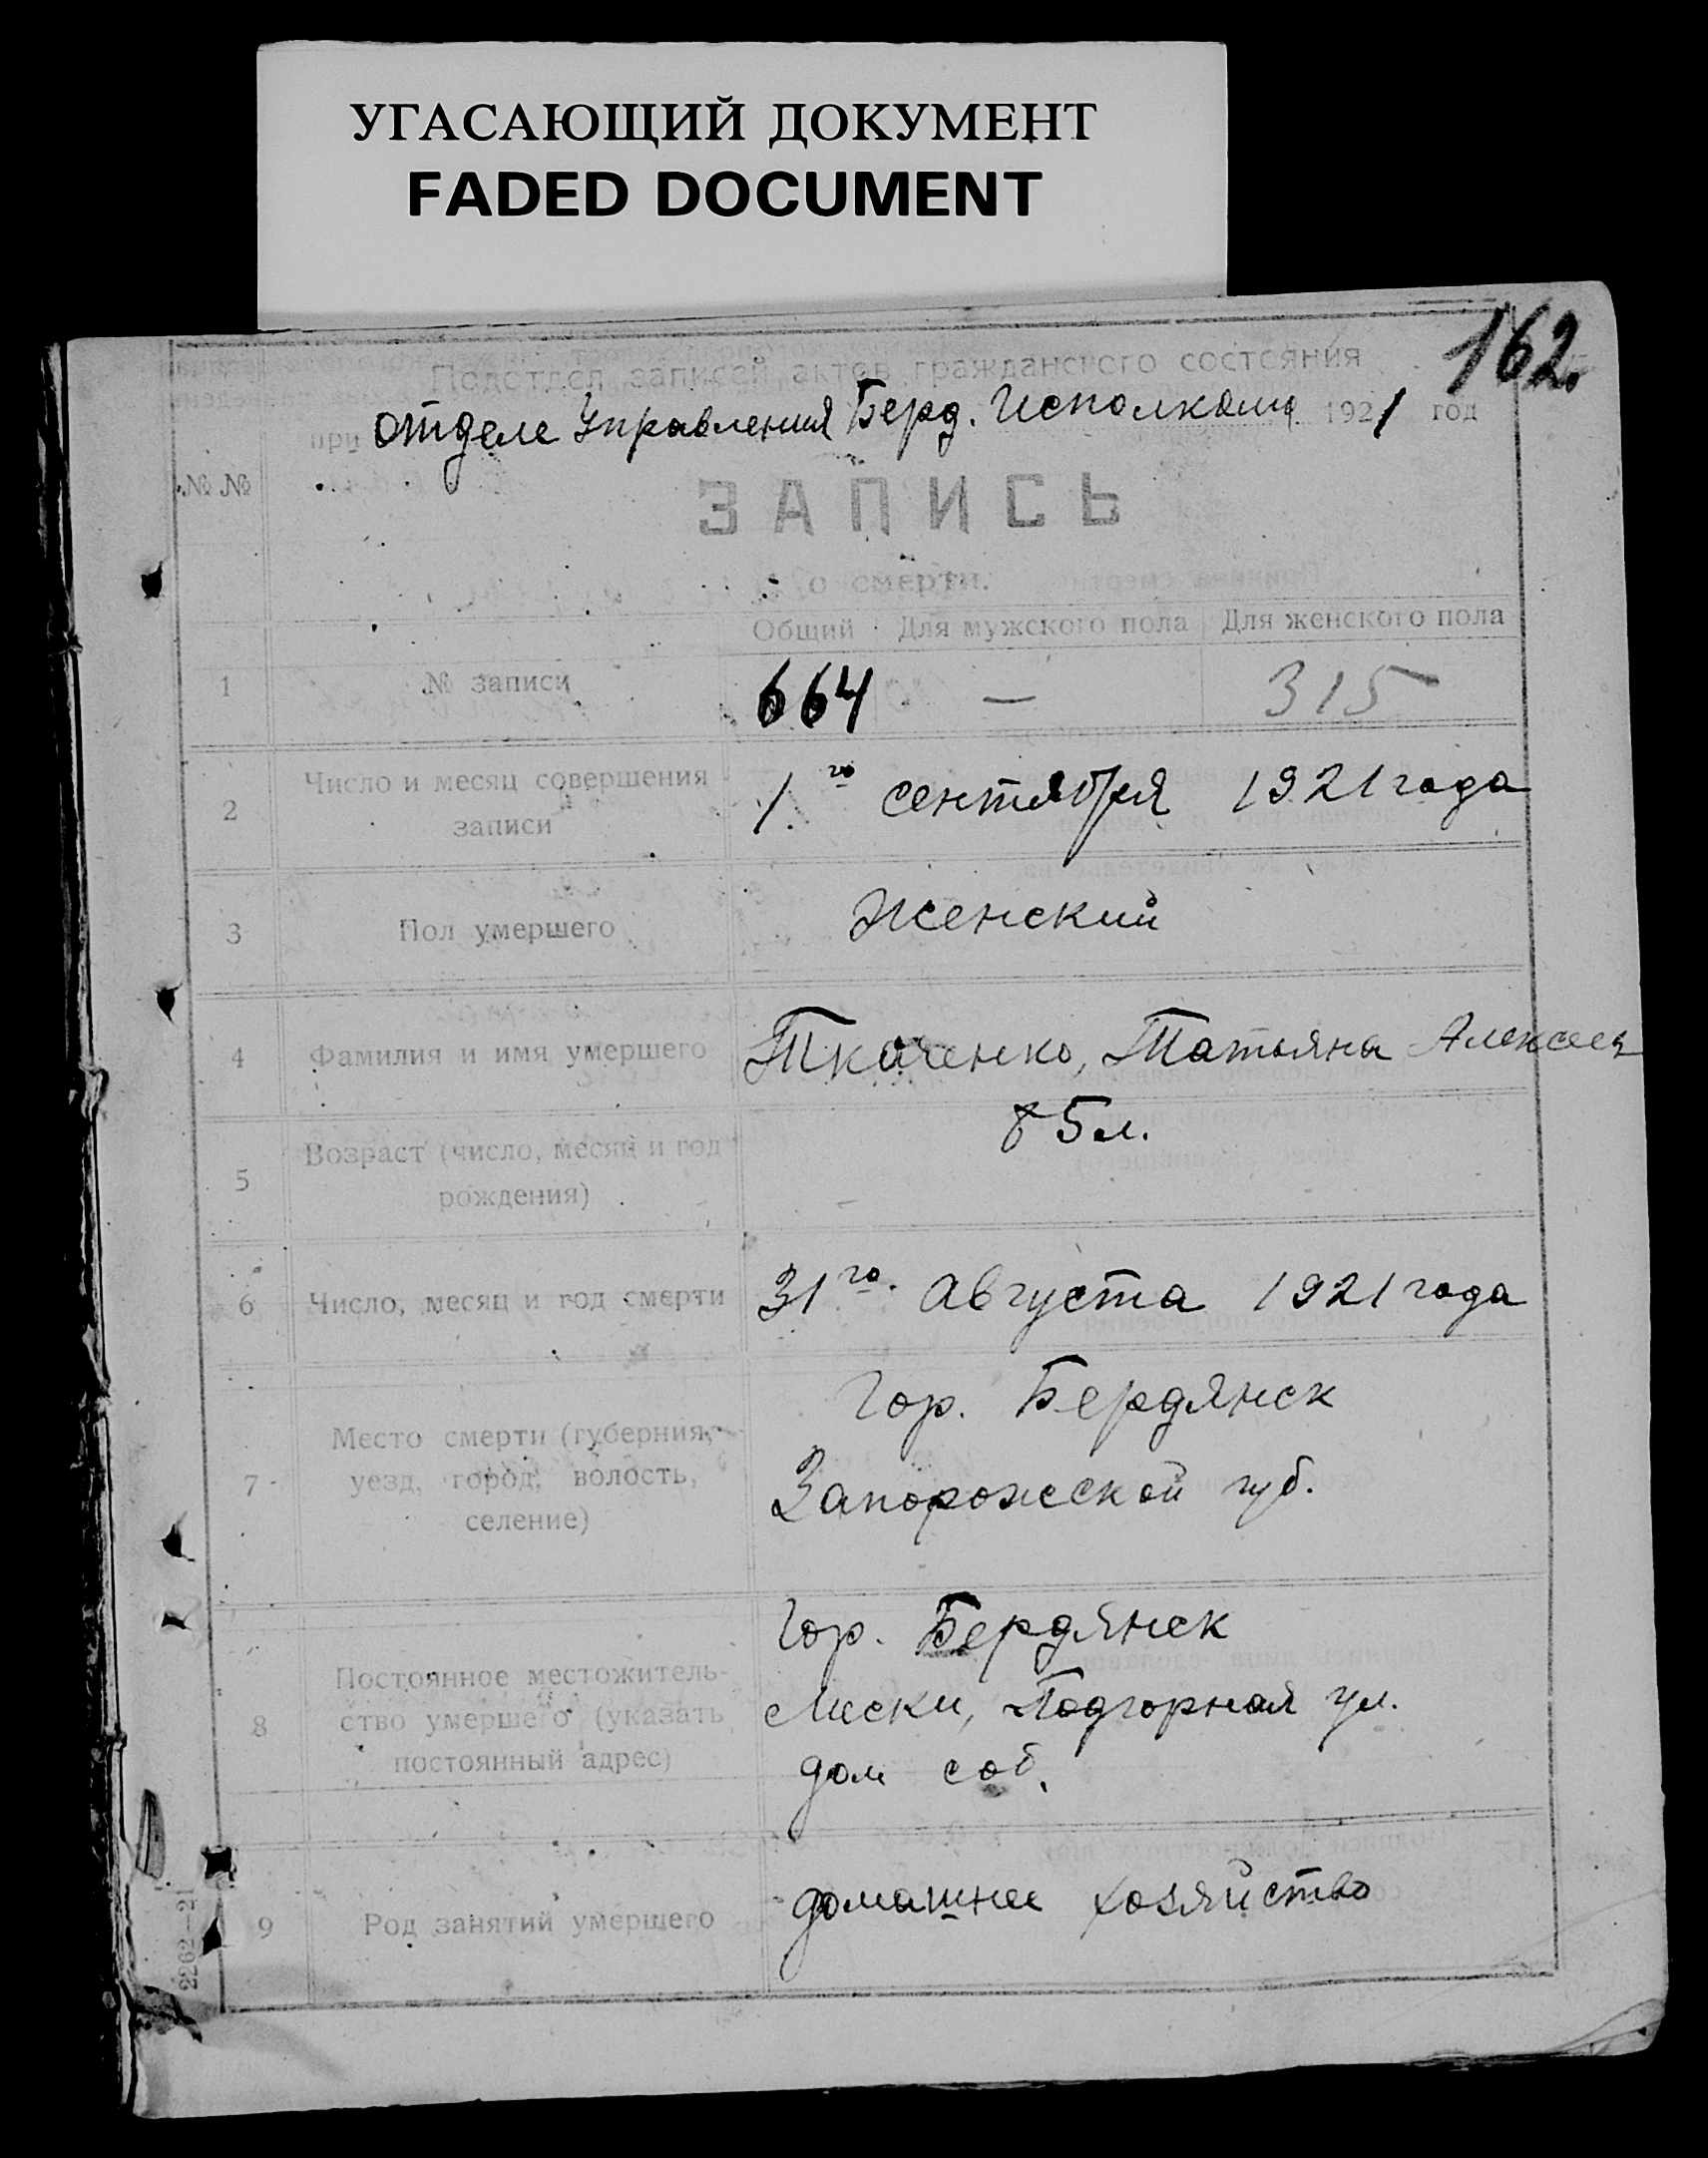 УГАСАЮЩИЙ ДОКУМЕНТ
FADED DOCUMENT
162.
Подотдел записей актов гражданского состояния
при отделе Управления Берд. Исполкома 1921 год
№ №
ЗАПИСЬ
о смерти.
Общий Для мужского пола Для женского пола
1 № записи 664 — 315
2 Число и месяц совершения
записи
1го сентября 1921 года
3 Пол умершего Женский
4 Фамилия и имя умершего Ткаченко, Татьяна Алексеев
5 Возраст (число, месяц и год
рождения)
85 л.
6 Число, месяц и год смерти 31го Августа 1921 года
7 Место смерти (губерния,
уезд, город, волость,
селение)
Гор. Бердянск
Запорожской губ.
8 Постоянное местожитель-
ство умершего (указать
постоянный адрес)
Гор. Бердянск
Лиски, Подгорная ул.
дом соб.
9 Род занятий умершего домашнее хозяйство
2262—21